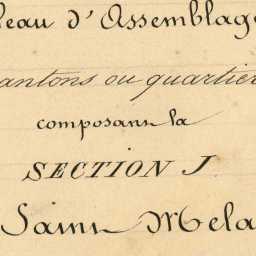 leau d'Assemblag
antons ou quartier
composant la
SECTION J
Saint Mela